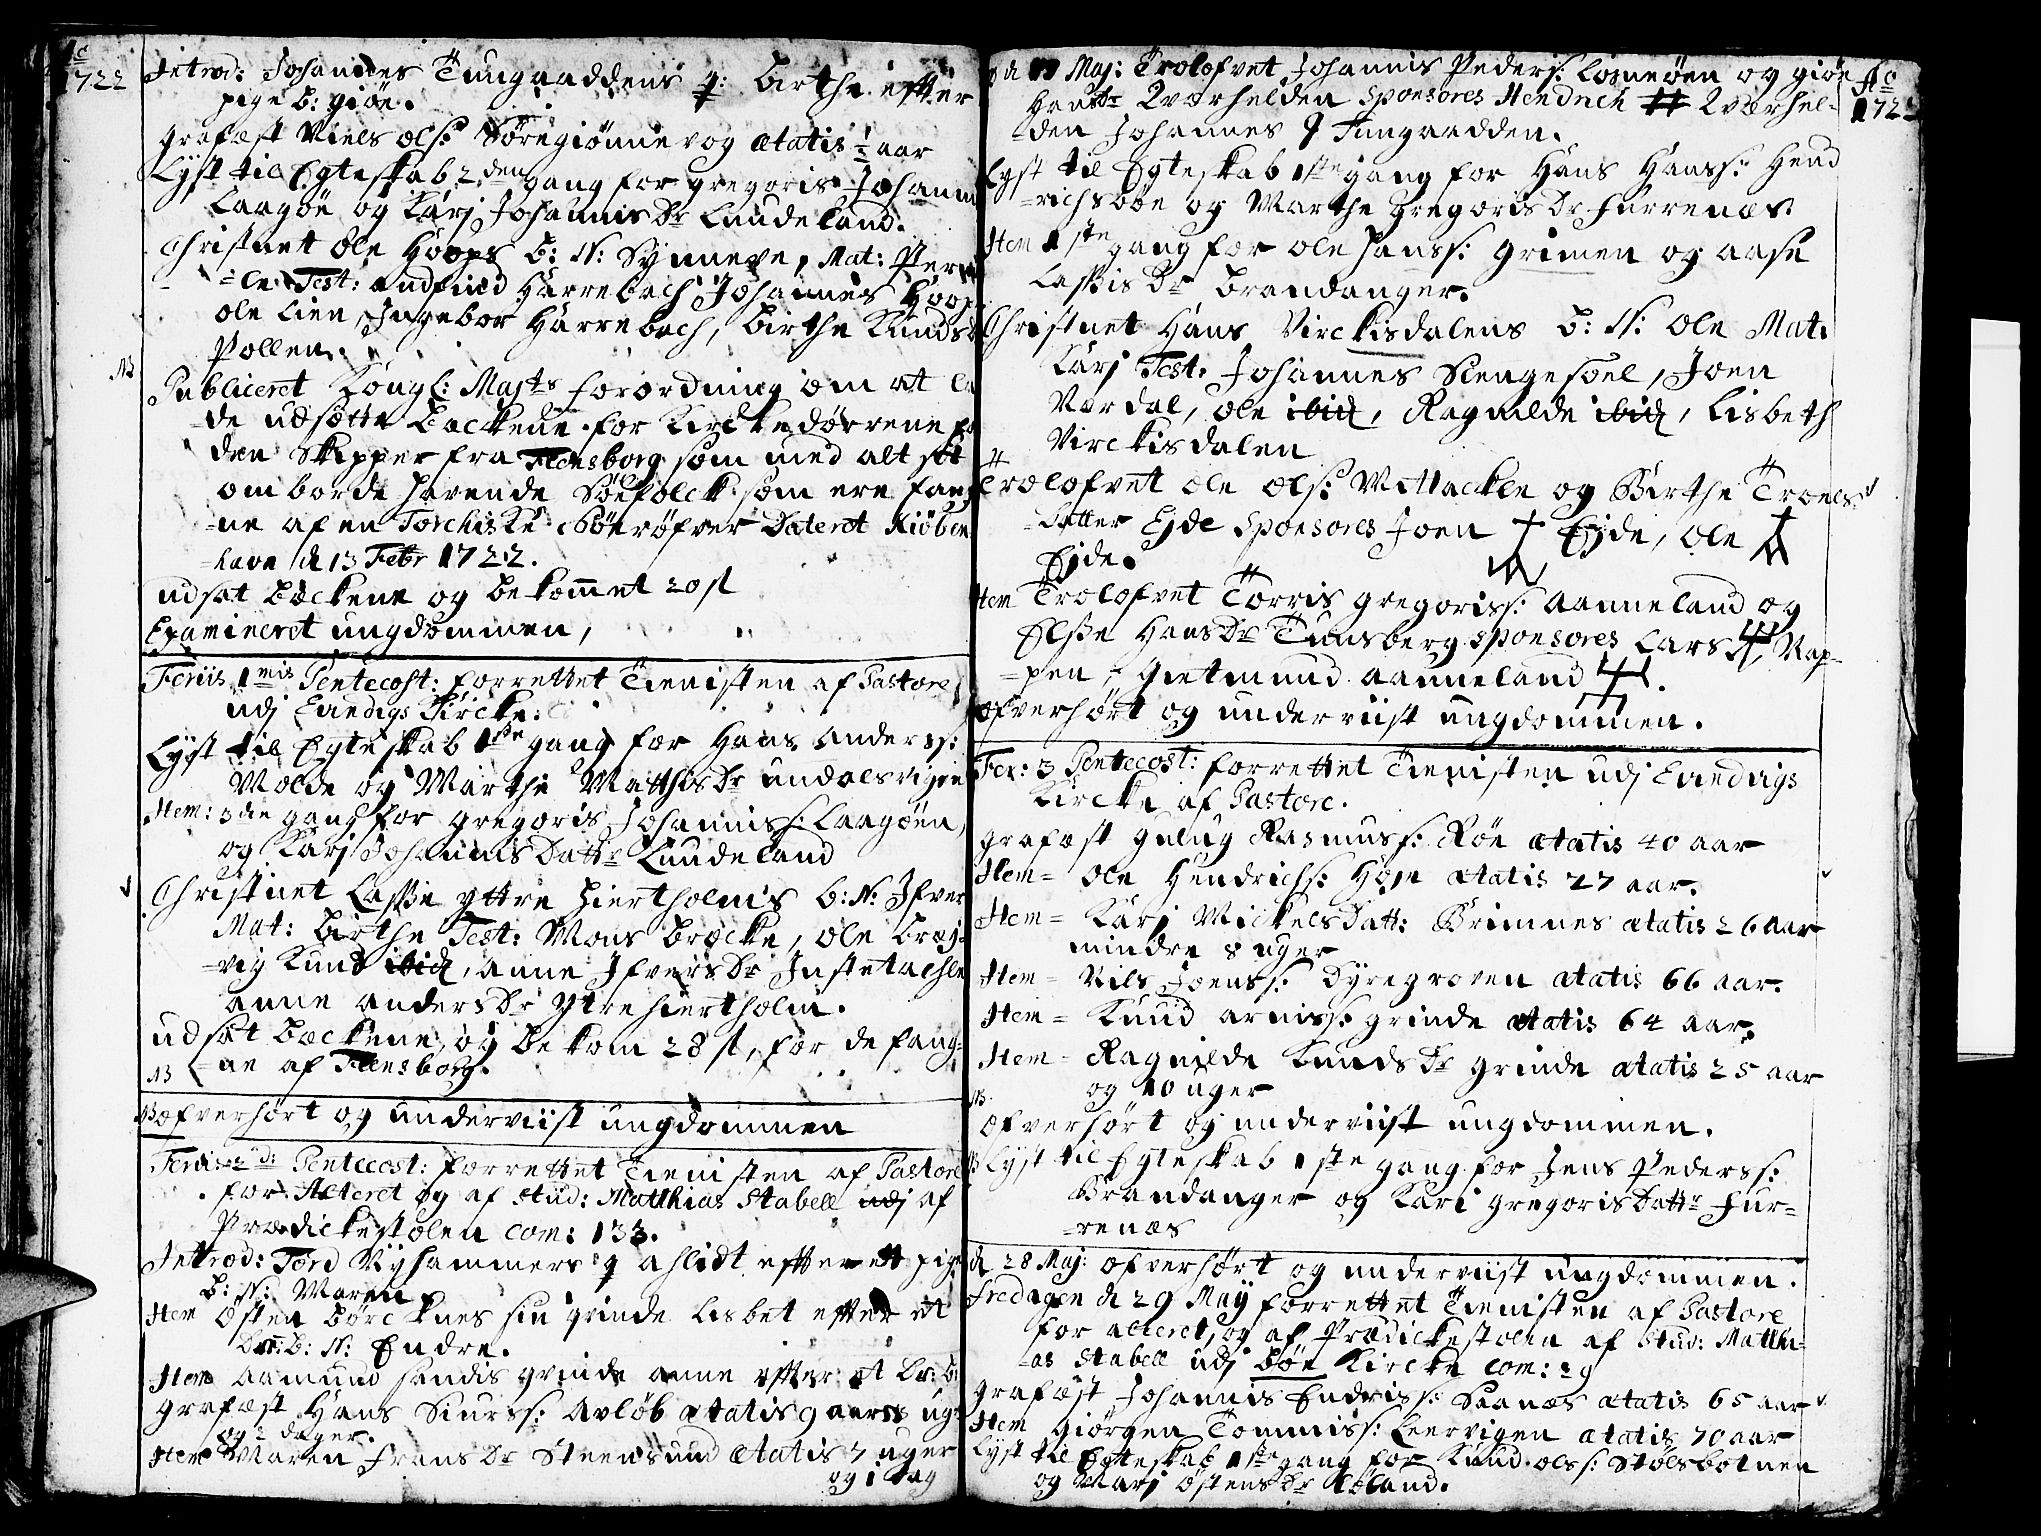 Ac
1722
Introd: Johannes Tungaaddens q: Birthe effter
pige b: giöe.
Grafæst Niels ols: Söregiönnevog ætatis ½ aar
Lyst til Egteskab 2den gang for gregoris Johann
Laagöe og Karj Johannis Dr Luudeland.
Christnet Ole Höops b: N: Synneve, Mat: Per
=le Test: andfind Härrebach Johannes Höop
ole Lien, Ingebor Härrebach, Birthe Knuds
Pollen.
NB
Publiceret Kongl: Majts forordning om at
de udsötte Beckene for Kirckedørrene
den Skipper fra Flensborg som med alt sit
omborde havende Söefolck som ere fang
=ne af en Torchiske Söeröfver Dateret Kiöben
=havn d 13 Febr 1722.
udsat Bæckene og bekommet 20 st
Examineret ungdommen,
Feriis 1mis Pentecost: forrettet Tienisten af Pastore
udj Evindigs Kircke:
Lyst til Egteskab 1ste gang for Hans Anderss:
Molde og Marthe Matthis Dr undalsvigen
Item: 3die gang for gregoris Johanniss: Laagöen,
og Karj Johannis Dattr Luudeland
Christnet Lasse yttre hiertholms b: N: Ifver
Mat: Birthe Test: Mons Bræcke, Ole Bræj
=vig Knud ibid, Anne Ifvers Dr Instetachle
anne anders Dr ytrehiertholm.
udsat Bæckene, og bekom 28 st, for de fang=
NB =ne af Flensborg.
NB ofverhørt og underviist ungdommen
Feriis 2d: Pentecost: forrettet Tienisten af Pastore
for Alteret og af Stud: Matthias Stabell udj af
Prædickestolen com: 133.
Introd: Tord Nyhammers q ahlidt effter ett pige
b: N: Maren
Item Östen Börcknes sin qvinde Lisbet effter et
Dr: b: N: Endre.
Item Aamund sandis qvinde anne effter et Dr: b:
Grafæst Hans Siurss: Avlöb ætatis 9 aar 11 ug:
og 2 dager.
Item Maren Frans Dr Steensund ætatis 7 uger
og 1 dag
d 19 Maj: Trolofvet Johannis Peders: Losneöen og giöe
Hans Dr Qværhelden sponsores Hendrich Qværhel=
den Johannes Tungaadden.
Ac
172
Lyst til Egteskab 1ste gang for Hans Hanss: Hend
=richsböe og Marthe Gregoris Dr Furrenæs
Item 1ste gang for ole Janss: Grimen og aase
Lassis Dr Brandanger.
Christnet Hans Virckisdalens b: N: Ole Mat:
Karj Test: Johannes Slengesoel, Joen
Nordal, ole ibid, Ragnilde ibid, Lisbeth
Virckisdalen
Trolofvet ole ols: Mackle og Birthe Troels
=datter Ejde Sponsores Joen Ejde, Ole
Ejde.
Item Trolofvet Torris gregoriss: aanneland og
Elsse Hans Dr Tunsberg sponsores Lars Nap=
=pen, Gietmund aanneland.
ofverhørt og underviist ungdommen.
Fer: 3 Pentecost: forrettet Tienisten udj Evindvigs
Kircke af Pastore.
grafæst gulug Rasmuss: Röe ætatis 40 aar
Item= Ole Hendrichs: Höje ætatis 27 aar.
Item= Karj Mickels Datt: Brimnes ætatis 26 aar
mindre 8 uger
Item= Nils Joenss: Dyregroven ætatis 66 aar.
Item= Knud arniss: grinde ætatis 64 aar.
Item= Ragnilde Knuds Dr grinde ætatis 25 aar
og 10 uger
NB
ofverhørt og underviist ungdommen.
Lyst til Egteskab 1ste gang for Jens Pederss:
Brandanger og Kari gregoris Dattr Fur=
=renæs
d 28 Maj: ofverhørt og underviist ungdommen.
fredagen d 29 Maij forrettet Tienisten af Pastore
for alteret, og af Prædickestolen af Stud: Matthi=
=as Stabell udj Böe Kircke com: 29
grafæst Johannis Endriss: Saanæs ætatis 65 aar
Item giörgen Tommiss: Leervigen ætatis 70 aar
Lyst til Egteskab 1ste gang for Knud olss: Stölsbotnen
og Marj östens Dr Töland.